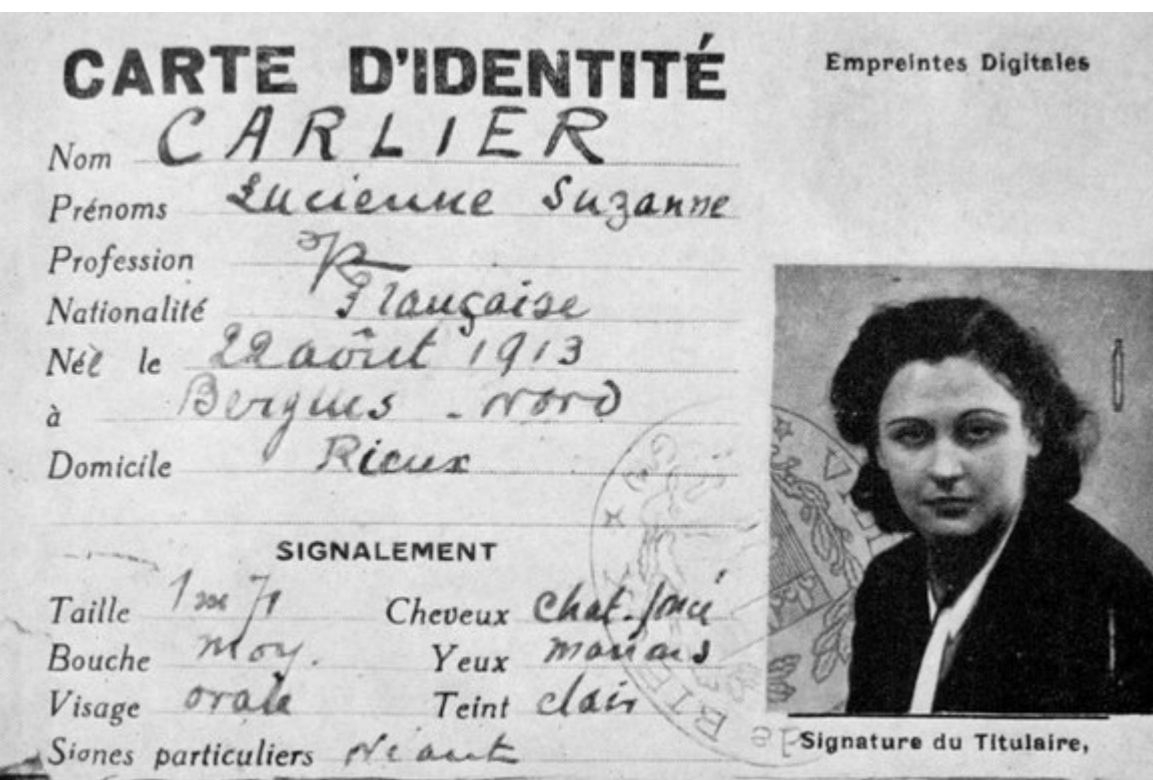 CARTE D'IDENTITÉ
Empreintes Digitales
Nom CARLIER
Prénoms Lucienne Suzanne
Profession
Nationalité Française
Née le 22 août 1913
à Bergues - Nord
Domicile Rieux
SIGNALEMENT
Taille 1m71 Cheveux Chat. foncé
Bouche moy. Yeux marrons
Visage ovale Teint clair
Signes particuliers Néant
Signature du Titulaire,